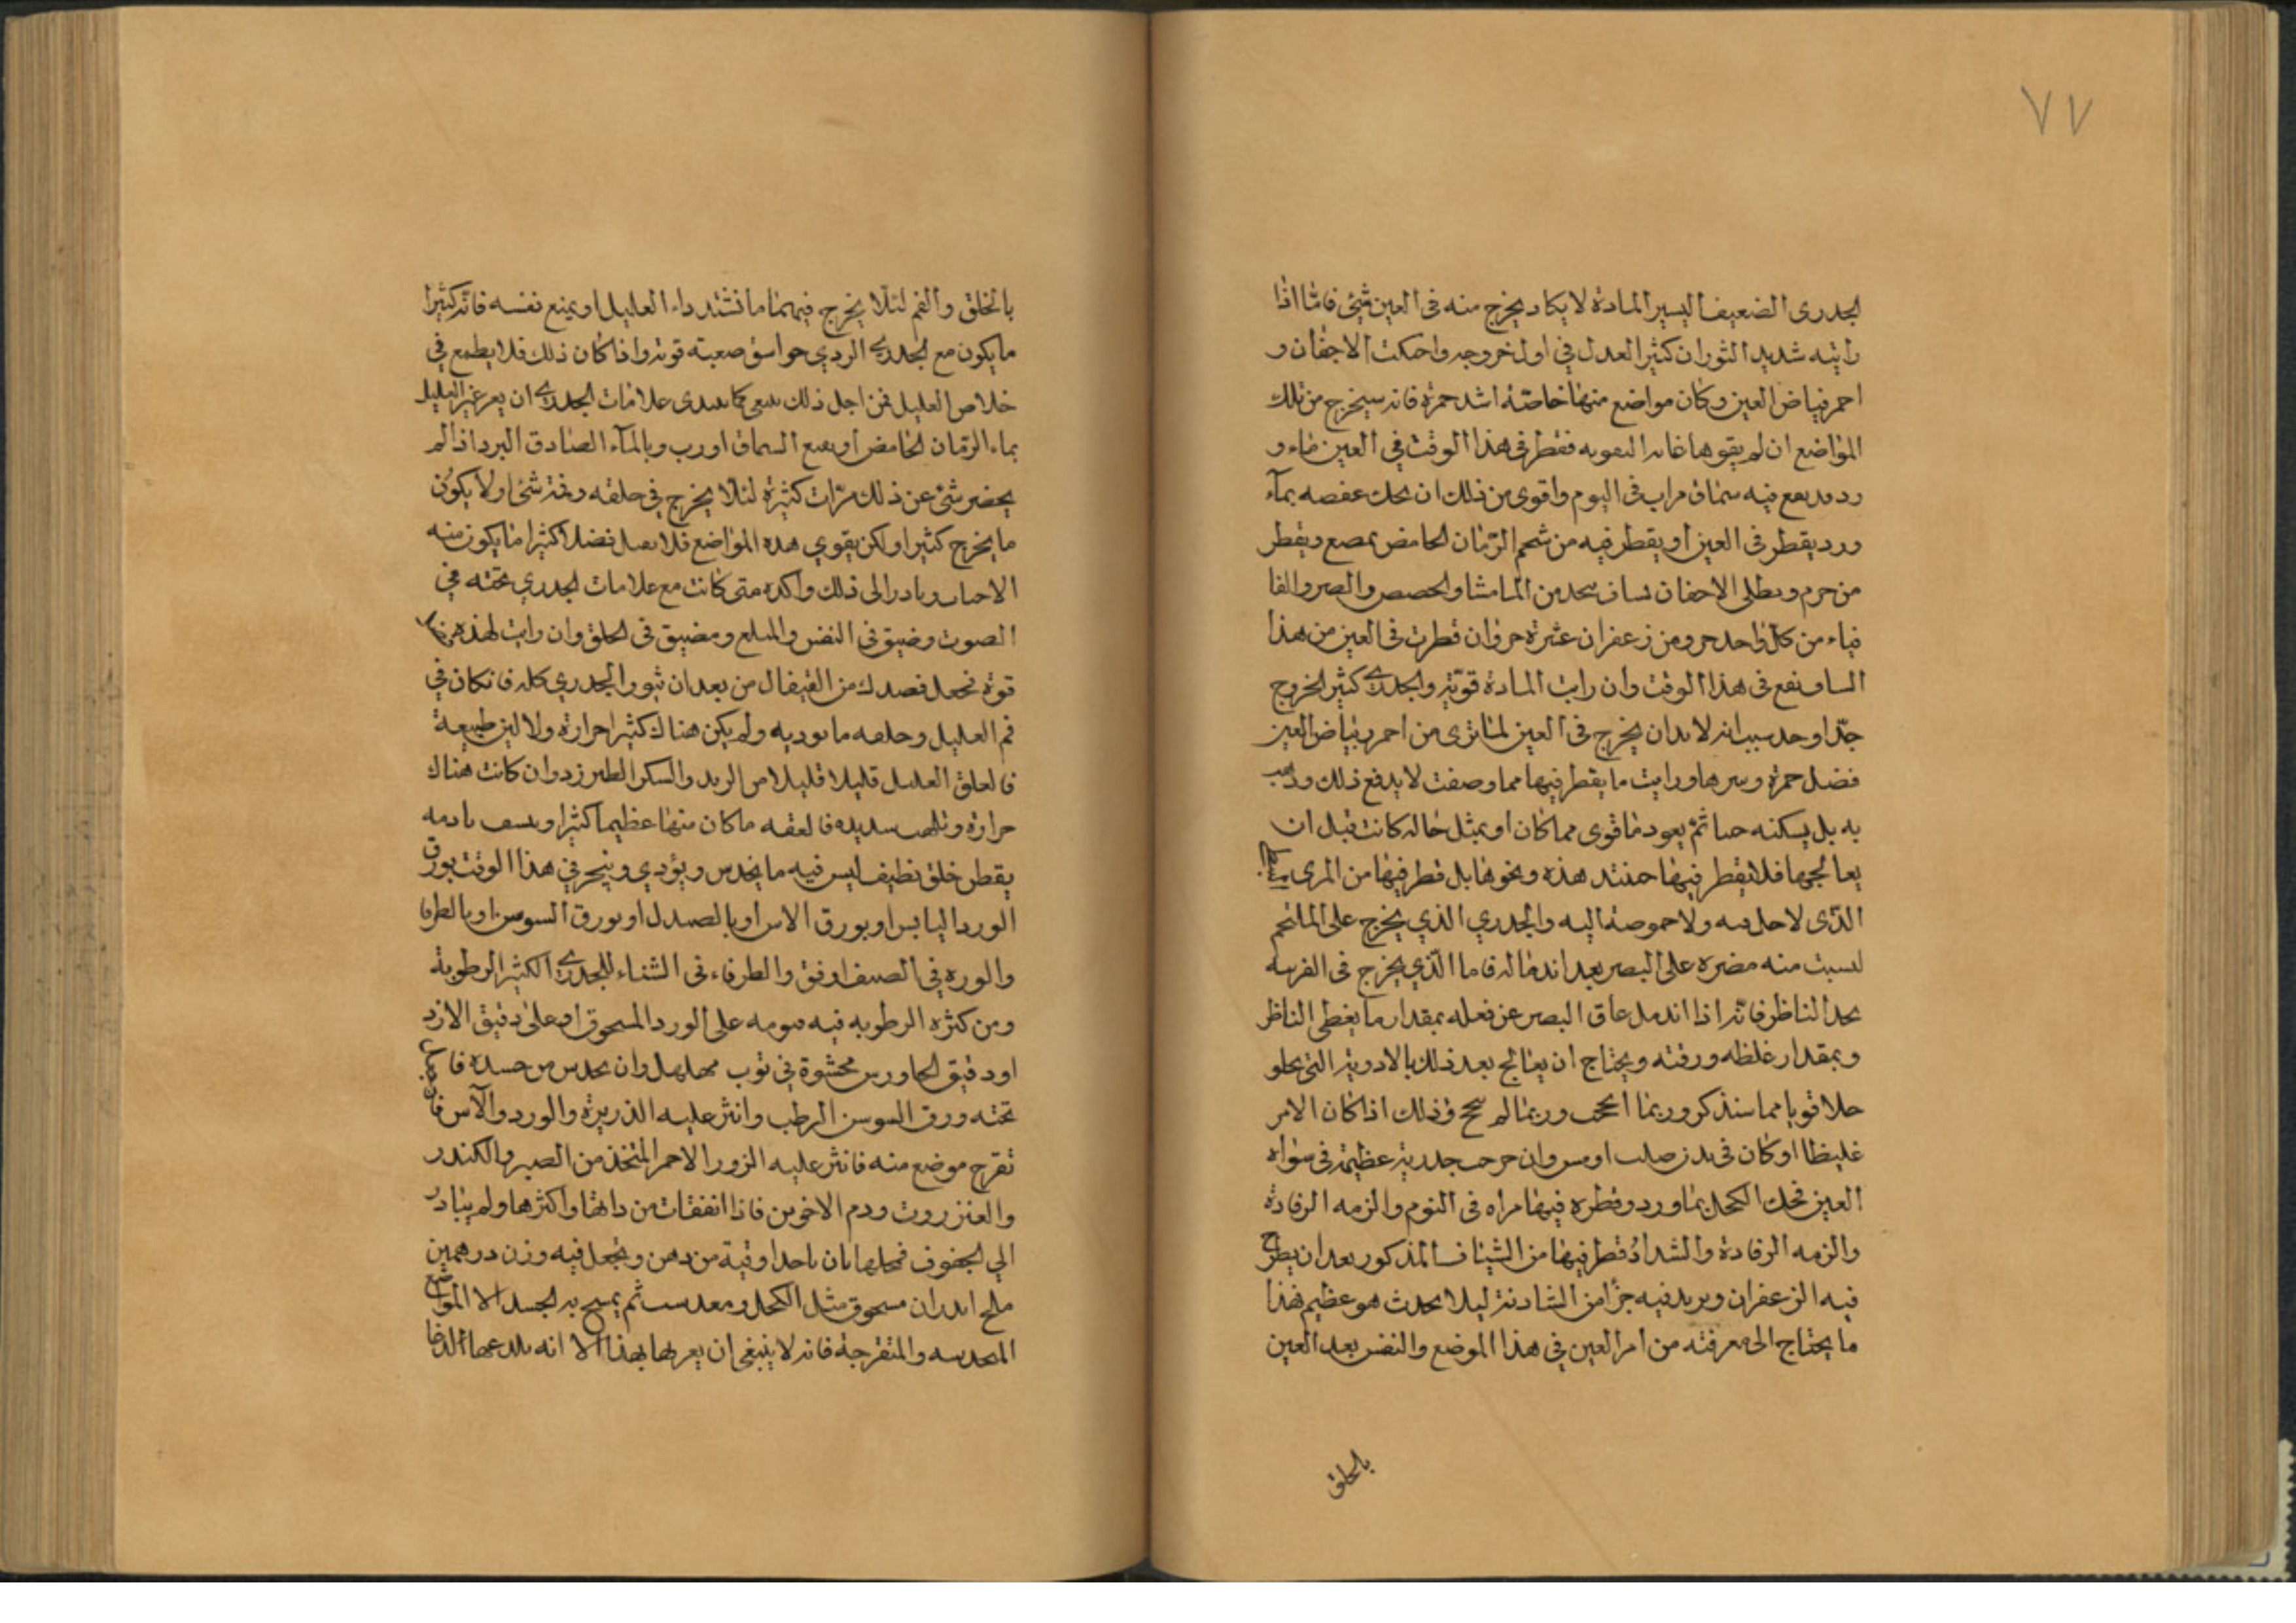 ٧٧
الجدرى الضعيف اليسير المادة لا يكاد يخرج منه فى العين شئ فامّا اذا
رايته شديد الثوران كثير العدل في اول خروجه واحتكت الاجفان و
احمر بياض العين وكان مواضع منها خاصّة اشد حمرة فانه سيخرج من تلك
المواضع ان لم يقوها غايه التقويه فقطر فى هذا الوقت في العين ماء و
رد قد نقع فيه سماق مرات فى اليوم واقوى من ذلك ان يحك عفصه بمآء
ورد يقطر فى العين او يقطر فيه من شحم الرّمان الحامض يمصع ويقطر
من حرم ويطلى الاجفان بشاف يتخذ من المامثا والحصص والصبر والقا
قياء من كل واحد جزو ومن زعفران عشرة جزوان قطرت فى العين من هذا
الشياف نفع فى هذا الوقت وان رايت المادة قويّة والجدري كثير الخروج
جدّا وحدست انه لا بد ان يخرج فى العين لما ترى من احمر بياض العين
فضل حمرة ورايت ما يقطر فيها مما وصفت لا يدفع ذلك
به بل يسكنه حينا ثمّ يعود ما قوى مما كان او بمثل حاله كانت قبل ان
يعالجها فلا يقطر فيها حينئد هذه ونحوها بل قطر فيها من المرى
الذّى لا خل فيه ولا حموضة اليه والجدري الذي يخرج على الملتحم
ليست منه مضره على البصر بعد اندماله فاما الّذي يخرج فى القرنيه
بحد الناظر فانّه اذا اندمل عاق البصر عن فعله بمقدار ما يغطى الناظر
وبمقدار غلظه ورقته ويحتاج ان يعالج بعد ذلك بالادوية التى يجلو
جلا قويا مما سنذكر وربما انجحت وربما لم ينجح وذلك اذا كان الامر
غليظا او كان فى بدن صلب وان خرجت جدرية عظيمة فى سواد
العين فحك الكحل بماورد وقطره فيها مراه فى النوم والزمه الرفادة
والزمه الرفادة والشداد قطر فيها من الشياف المذكور بعد ان يطرح
فيه الزعفران ويريد فيه جزأ من الشادنة ليلا يحدث هو عظيم فهذا
ما يحتاج الى معرفته من امر العين في هذا الموضع والنفس بعد العين
بالحلق
بالحلق والفم لئلّا يخرج فيهما ما تشتد داء العليل او يمنع نفسه فانّه كثيرا
ما يكون مع الجدري الردي خواسق صعبة قويه واذا كان ذلك فلا يطمع في
خلاص العليل فمن اجل ذلك ينبغى كما يبتدى علامات الجدري ان يغرغر العليل
بماء الرّمان الحامض او نقيع السماق او رب وبالمآء الصادق البرد اذا لم
يحضر شئ عن ذلك مرّات كثيرة لئلّا يخرج في حلقه وفمه شئ او لا يكون
ما يخرج كثيرا ولكن يقوي هذه المواضع فلا يقبل فضلا كثيرا ما يكون منه
الاختناق وبادر الى ذلك واكده متى كانت مع علامات الجدري بحته في
الصوت وضيق فى النفس والمبلع ومضيق فى الحلق وان رايت لهذه
قوة فجعل فصدك من القيفال من بعد ان ثور الجدري كله فان كان في
فم العليل وحلقه ما يوديه ولم يكن هناك كثير حرارة ولا لين طبيعة
فالعق العليل قليلا قليلا من الزبد والسكر الطبرزد وان كانت هناك
حرارة وتلهب شديده فالعقه ما كان منها عظيما كثيرا
يقطر خلق نظيف ليس فيه ما يخدس ويؤدي ويبخر في هذا الوقت بورق
الورد اليابس او بورق الاس او بالصندل او بورق السوسن او بالطرفا
والورد في الصيف اوفق والطرفاء فى الشتاء للجدري الكثير الرطوبة
ومن كثره الرطوبه فيه فنومه على الورد المسحوق او على دقيق الارز
او دقيق الجاورس محشوة في ثوب مهلهل وان يخدس من جسده فا
تحته ورق السوسن الرطب وانثر عليه الذريرة والورد والآس فان
تقرح موضع منه فانثر عليه الزرور الاحمر المتخذ من الصبر والكندر
والعنزروت ودم الاخوين فاذا انفقات من ذاتها واكثرها ولم يبادر
الي الجفوف فحلها بان ياخد اوقية من دهن ويجعل فيه وزن درهمين
ملح اندران مسحوق مثل الكحل ثم يمسح به الجسد الا المواضع
المتخدسه والمتقرحة فانه لا ينبغى ان يقربها بهذا الا انه يلدعها